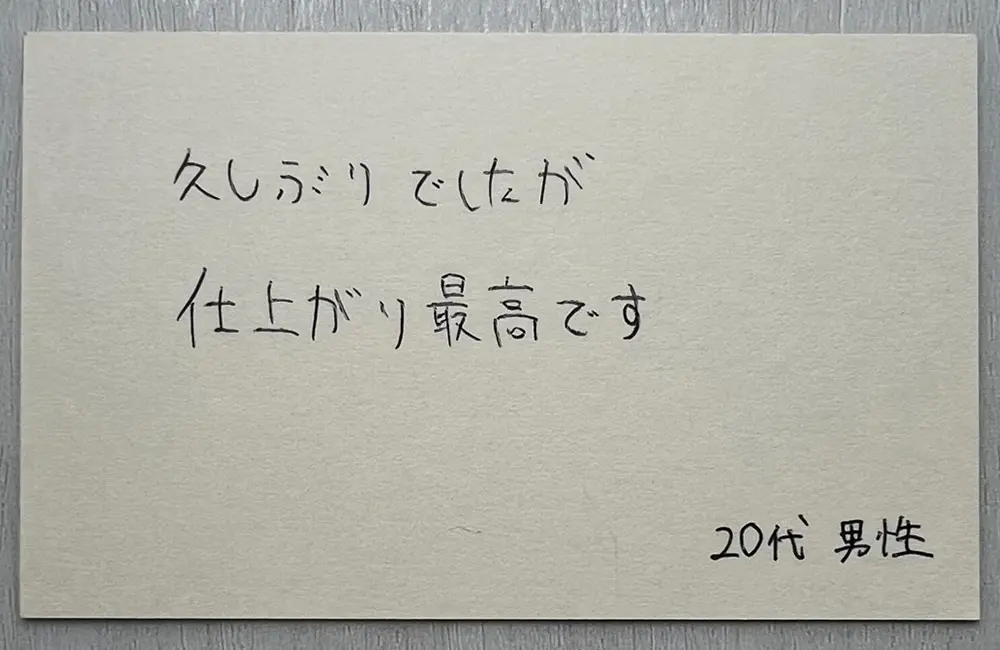 久しぶりでしたが
仕上がり最高です
20代 男性